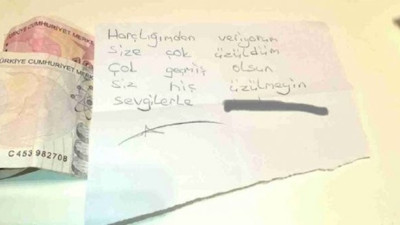 CUMHURİYET MERKEZ
TÜRKİYE CUMHURİYET MERKE
C453 982708
Harçlığımdan veriyorum
size çok üzüldüm
Çok geçmiş olsun
Siz hiç üzülmeyin
sevgilerle